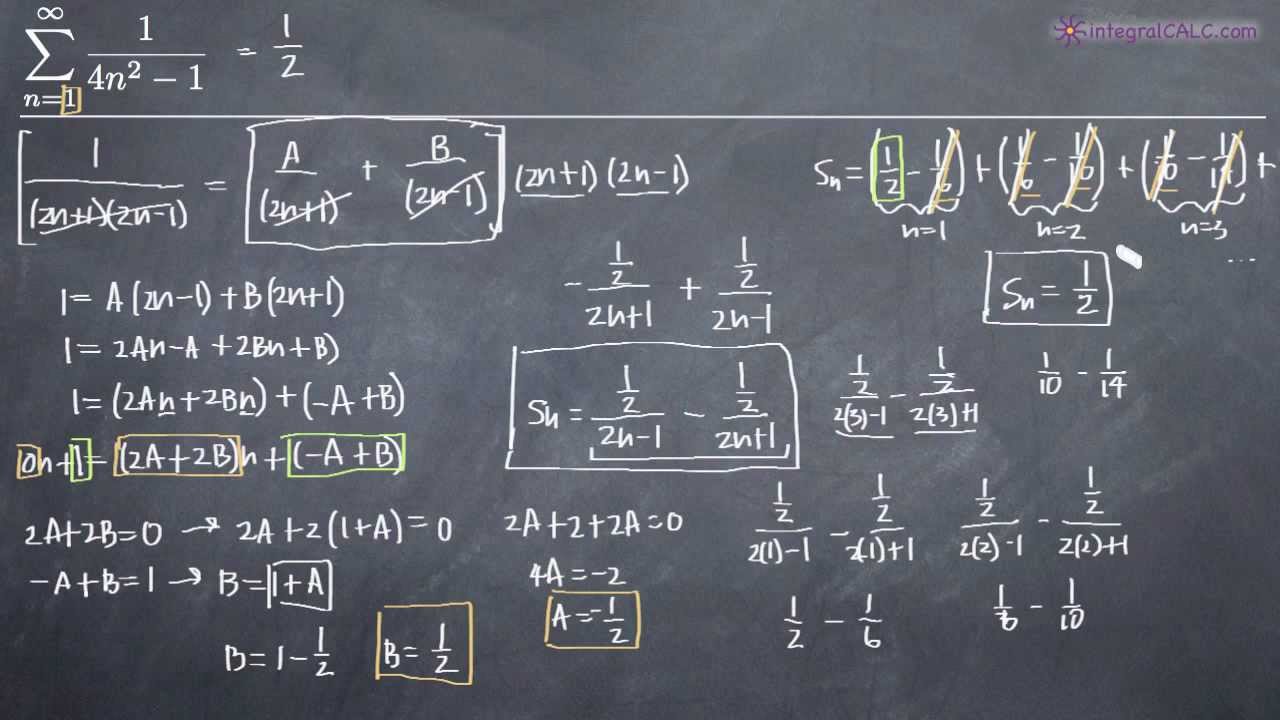 ∞
∑ 1/(4n² − 1) = 1/2
n=1
integralCALC.com
[1/((2n+1)(2n-1)) = A/(2n+1) + B/(2n-1)] (2n+1)(2n-1)
1 = A(2n-1) + B(2n+1)
1 = 2An-A + 2Bn+B)
1 = (2An+2Bn) + (-A+B)
0n+1 = (2A+2B)n + (-A+B)
2A+2B=0 → 2A+2(1+A)=0
-A+B=1 → B=1+A
B=1-1/2
B=1/2
2A+2+2A=0
4A=-2
A=-1/2
-(1/2)/(2n+1) + (1/2)/(2n-1)
Sn = (1/2)/(2n-1) - (1/2)/(2n+1)
Sn = (1/2 - 1/6) + (1/6 - 1/10) + (1/10 - 1/14) +
n=1 n=2 n=3
...
Sn = 1/2
(1/2)/(2(3)-1) - (1/2)/(2(3)+1)
1/10 - 1/14
(1/2)/(2(1)-1) - (1/2)/(2(1)+1)
(1/2)/(2(2)-1) - (1/2)/(2(2)+1)
1/2 - 1/6
1/6 - 1/10